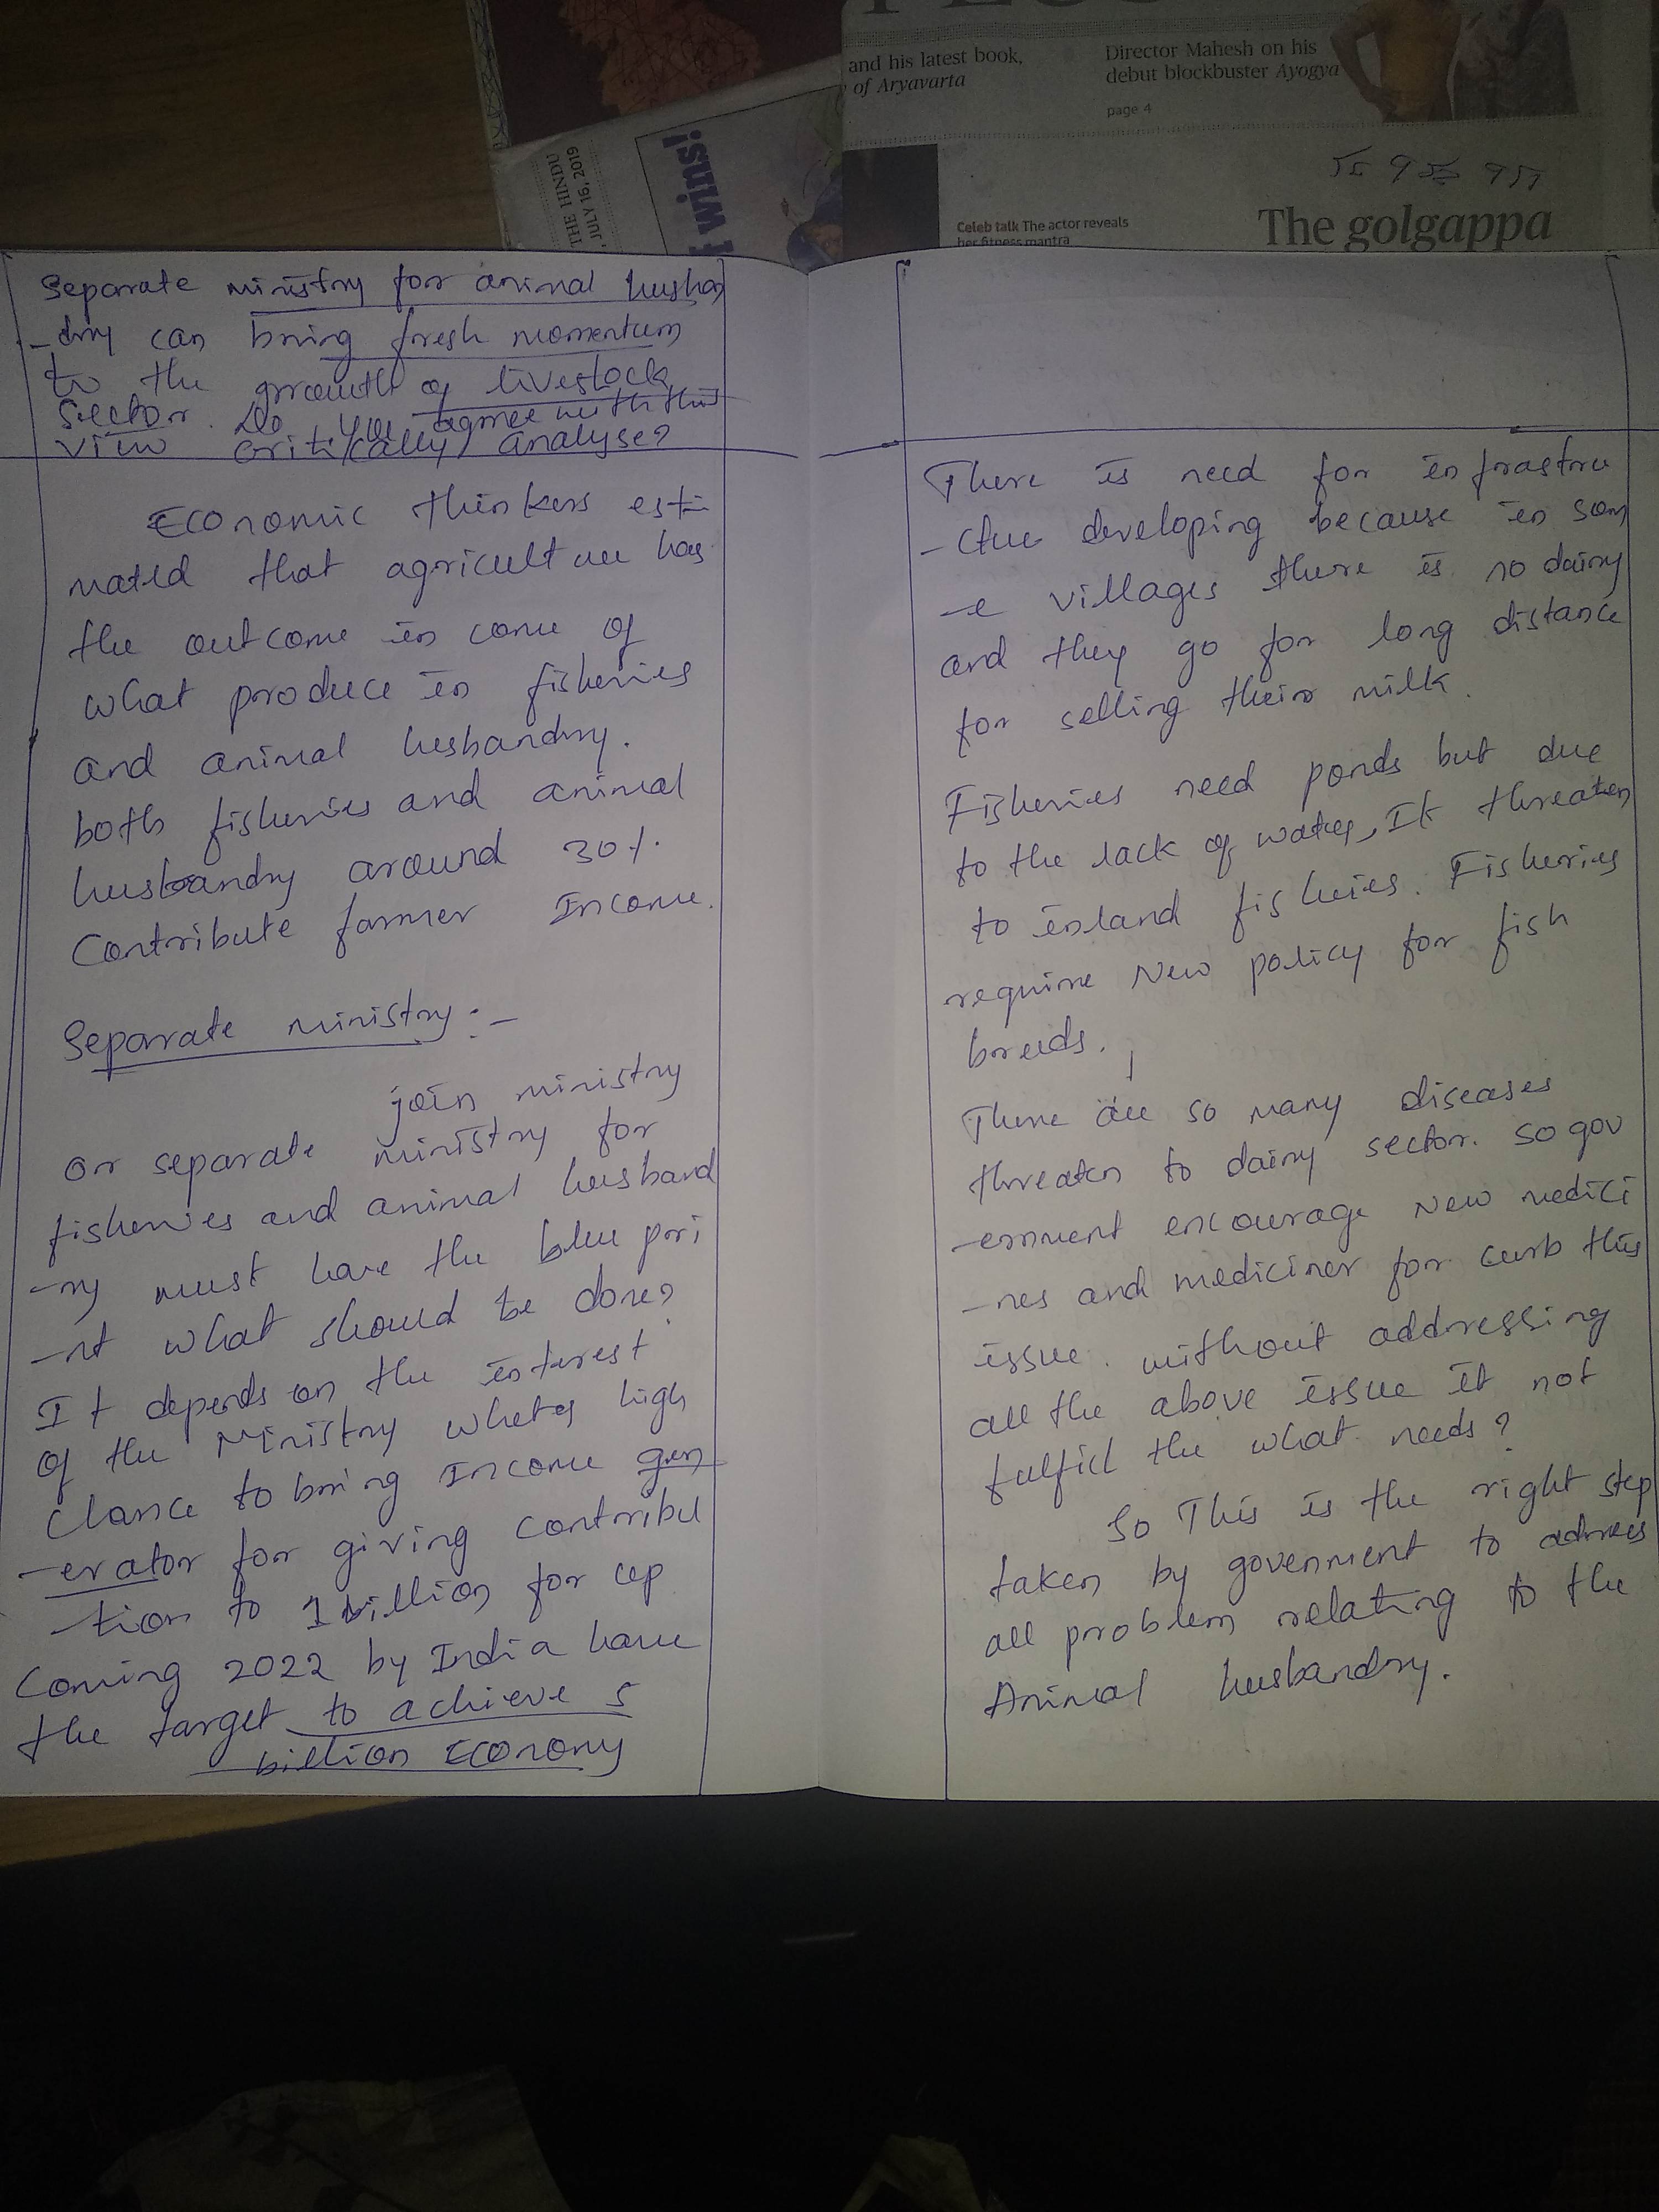 and his latest book,
of Aryavarta
Director Mahesh on his
debut blockbuster Ayogya
page 4
THE HINDU
JULY 15, 2019
wins!
Celeb talk The actor reveals
her fitness mantra
The golgappa
Separate ministry for animal husban
-dry can bring fresh momentum
to the growth of livestock
Sector. Do you agree with this
view critically analyse?
Economic thinkers esti
mated that agriculture has
the outcome in come of
what produce in fisheries
and animal husbandry.
both fisheries and animal
husbandry around 30%
Contribute farmer Income.
Separate ministry:-
join ministry
or separate ministry for
fisheries and animal husband
-ry must have the blue pri
-nt what should be done?
It depends on the interest
of the Ministry high
chance to bring Income gen
-erator for giving contribu
-tion to 1 billion for up
coming 2022 by India have
the target to achieve 5
billion Economy
There is need for infrastru
-ctue developing because in som
-e villages there is no dairy
and they go for long distance
for selling their milk.
Fisheries need ponds but due
to the lack of water, It threaten
to inland fisheries. Fisheries
require New policy for fish
breeds.
There are so many diseases
threaten to dairy sector. so gov
-ernment encourage New medici
-nes and mediciner for curb this
issue. without addressing
all the above issue it not
fulfill the what needs?
So This is the right step
taken by government to address
all problem relating to the
Animal husbandry.